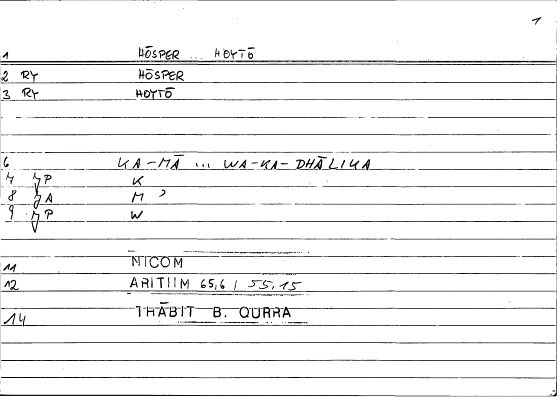 1
1 HŌSPER ... HOYTŌ
2 RY HŌSPER
3 RY HOYTŌ
6 KA-MĀ ... WA-KA-DHĀLIKA
7 P K
8 A M ʾ
9 P W
11 NICOM
12 ARITIIM 65,6 / 55.15
14 THĀBIT B. QURRA